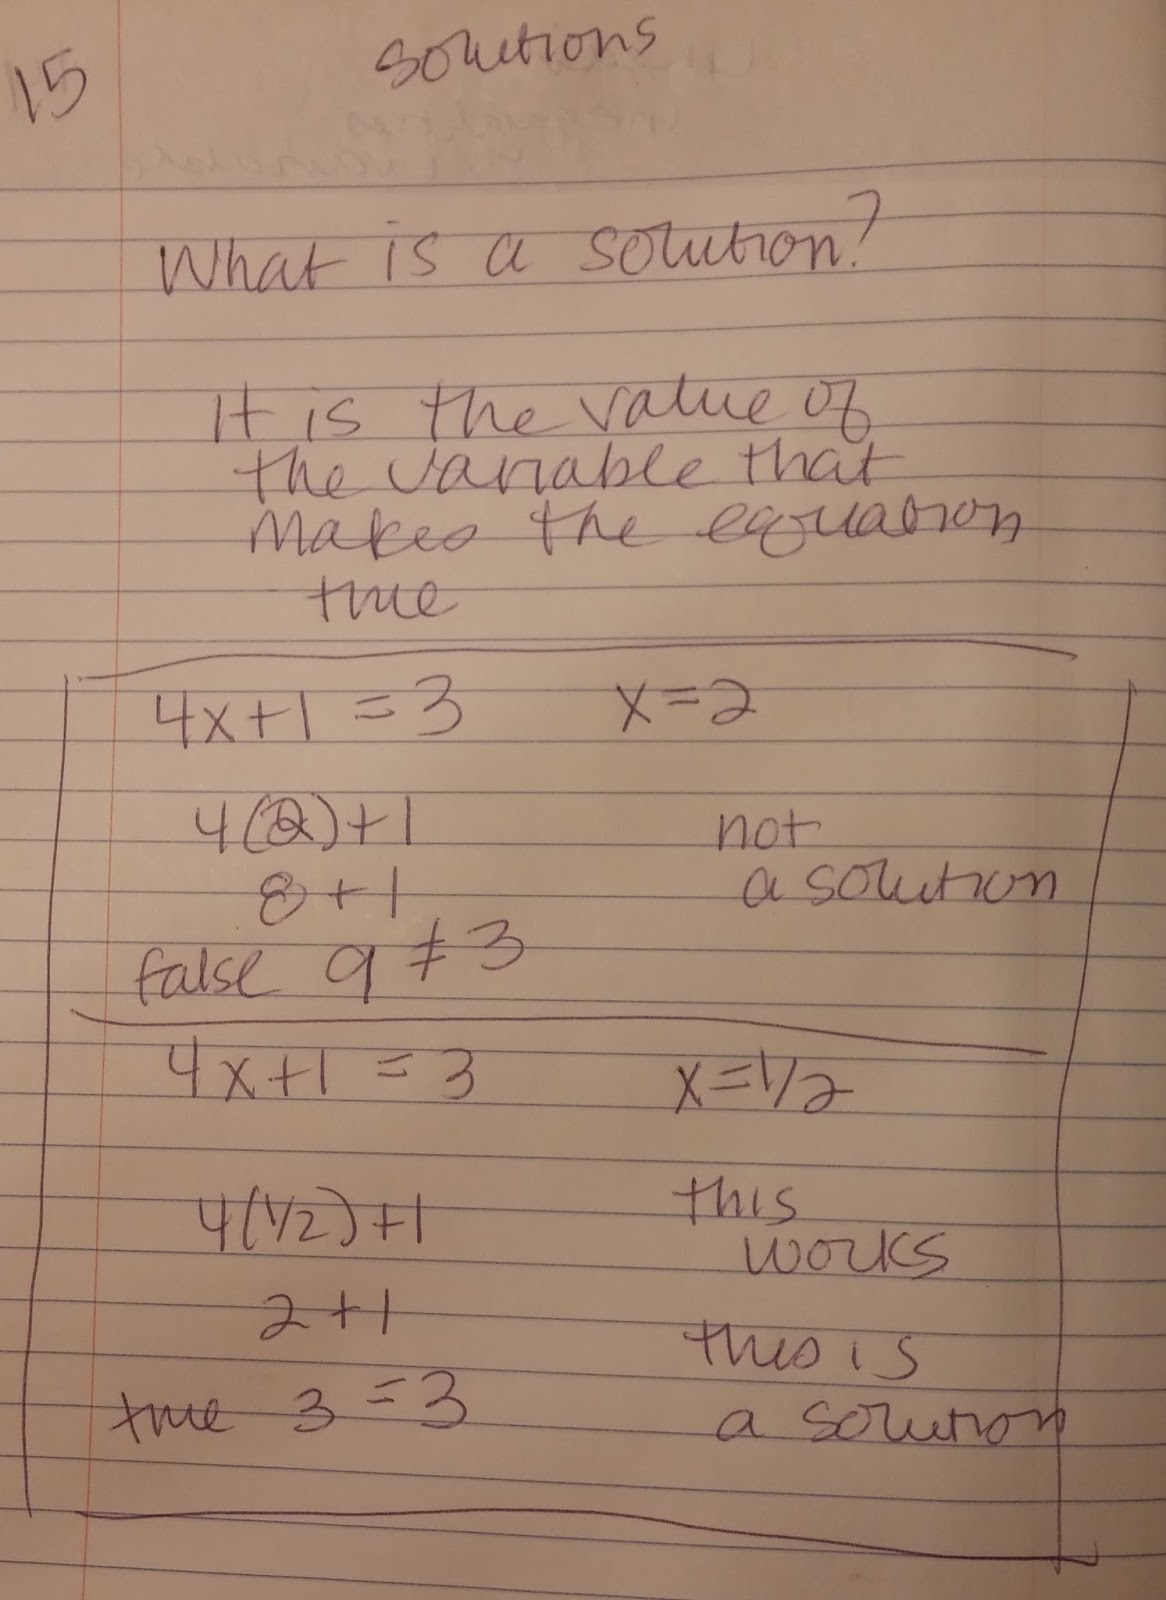 15
solutions
What is a solution?
It is the value of
the variable that
makes the equation
true
4x+1 = 3 x=2
4(2)+1 not
8+1 a solution
false 9 ≠ 3
4x+1 = 3 x=1/2
4(1/2)+1 this
works
2+1
this is
true 3 = 3 a solution